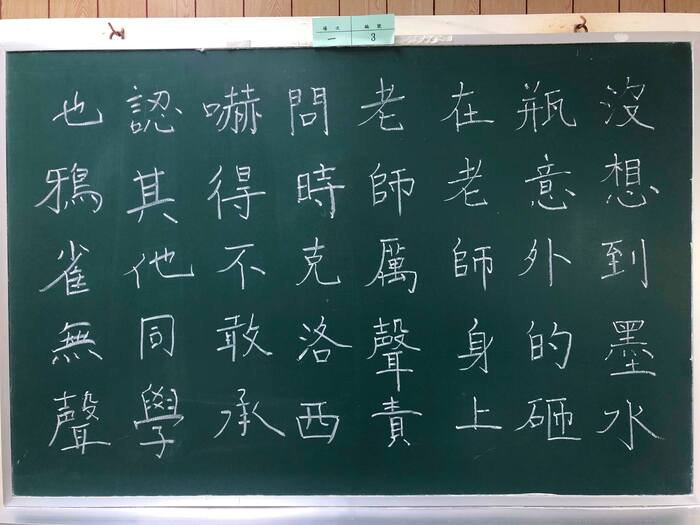 場次 編號
一 3
沒想到墨水
瓶意外的砸
在老師身上
老師厲聲責
問時克洛西
嚇得不敢承
認其他同學
也鴉雀無聲